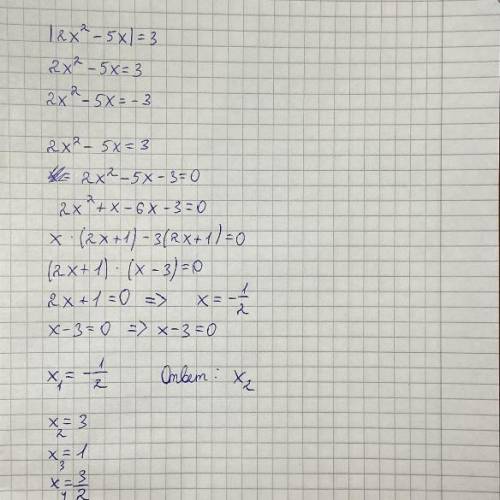 |2x² - 5x| = 3
2x² - 5x = 3
2x² - 5x = -3
2x² - 5x = 3
= 2x² - 5x - 3 = 0
2x² + x - 6x - 3 = 0
x · (2x + 1) - 3(2x + 1) = 0
(2x + 1) · (x - 3) = 0
2x + 1 = 0 => x = -1/2
x - 3 = 0 => x - 3 = 0
x₁ = -1/2 Ответ: x₂
x₂ = 3
x₃ = 1
x₄ = 3/2